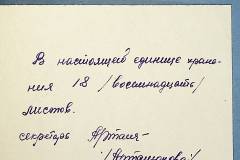 В настоящей единице хране-
ния 18 /восемнадцать/
листов.
секретарь